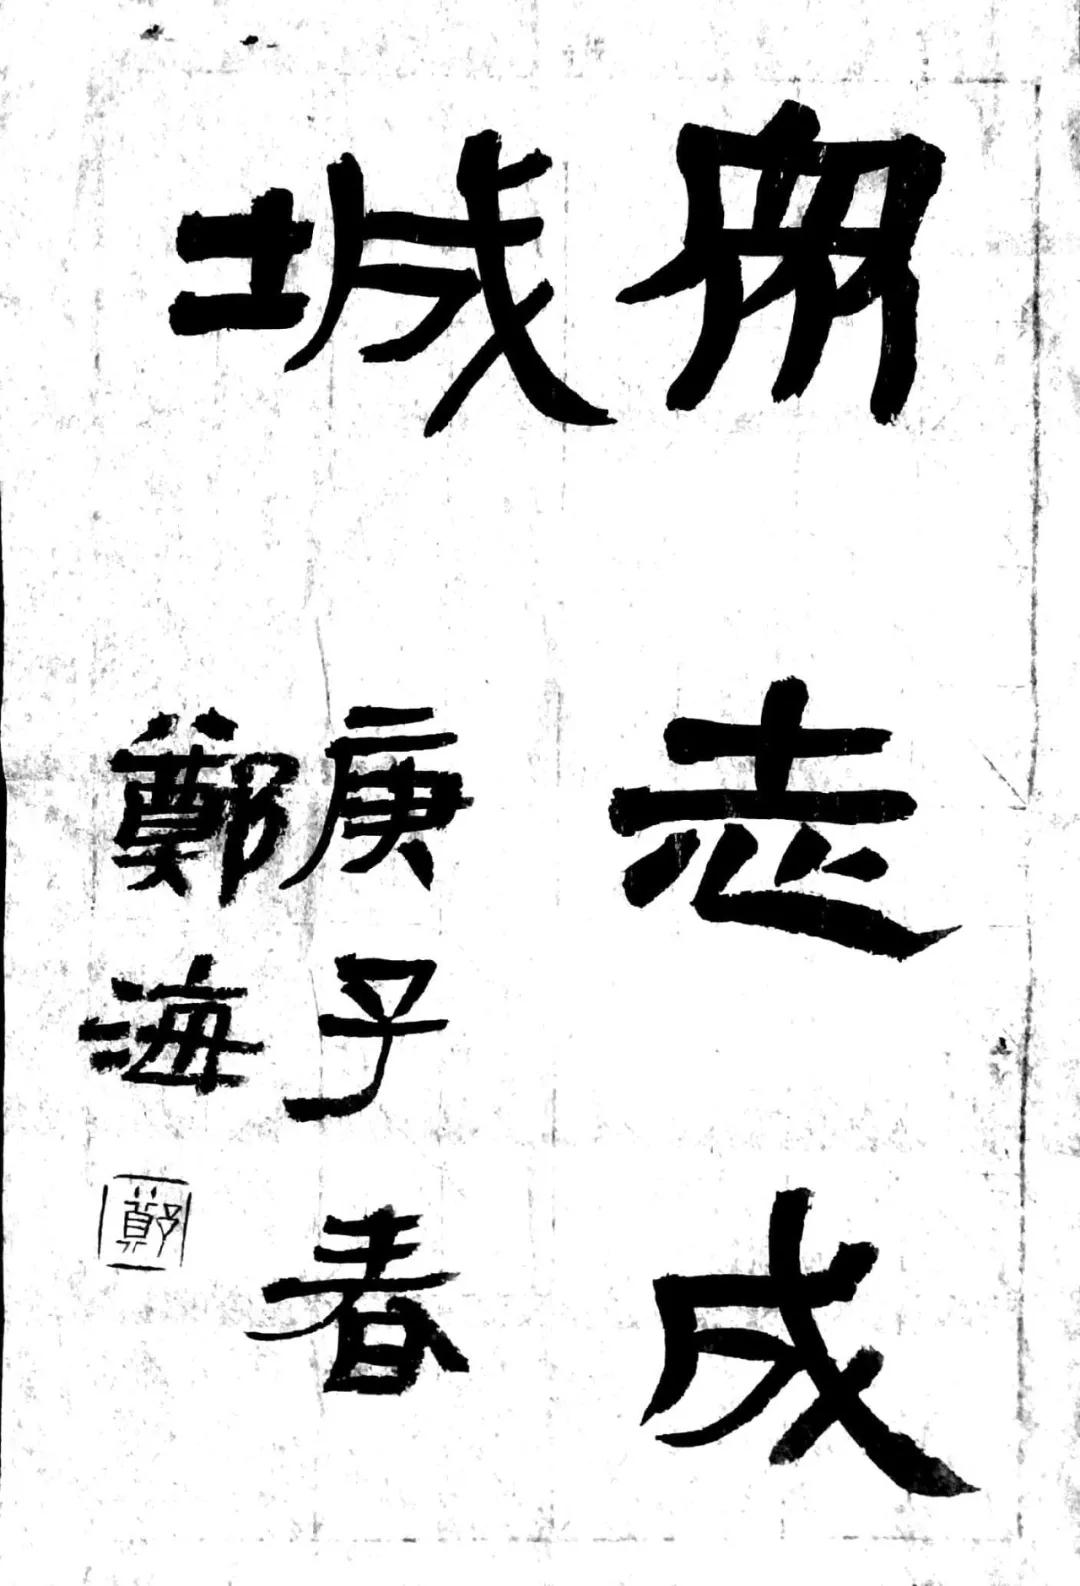 衆志成
城
庚子春
鄭海
鄭